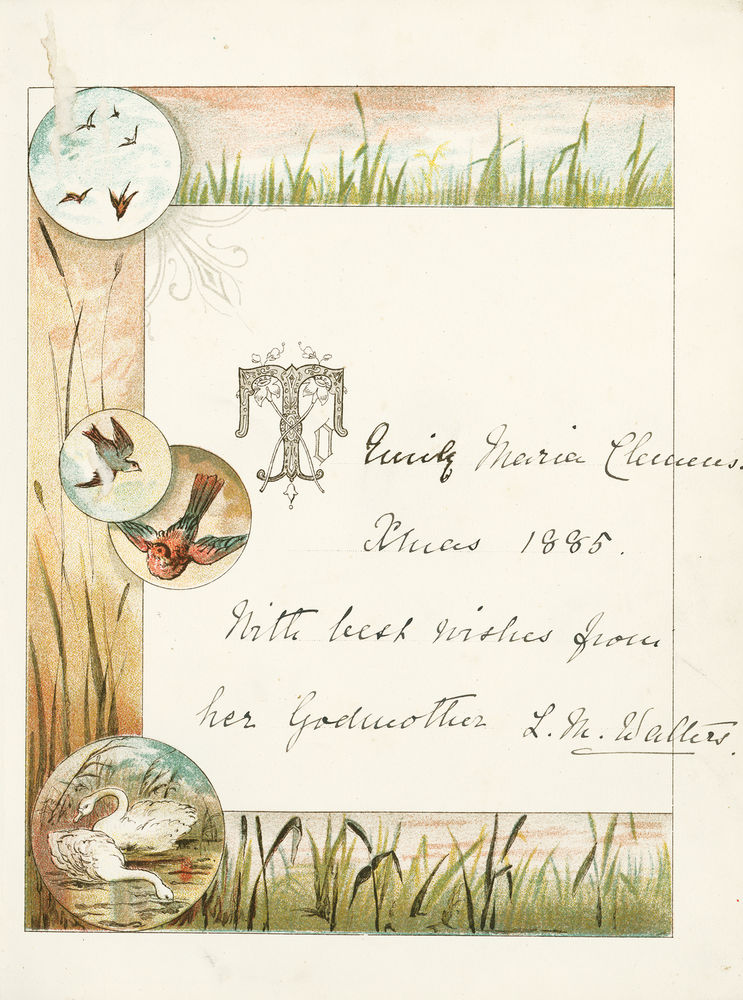 To Emily Maria Clemens.
Xmas 1885.
With best wishes from
her Godmother L. M. Walters.